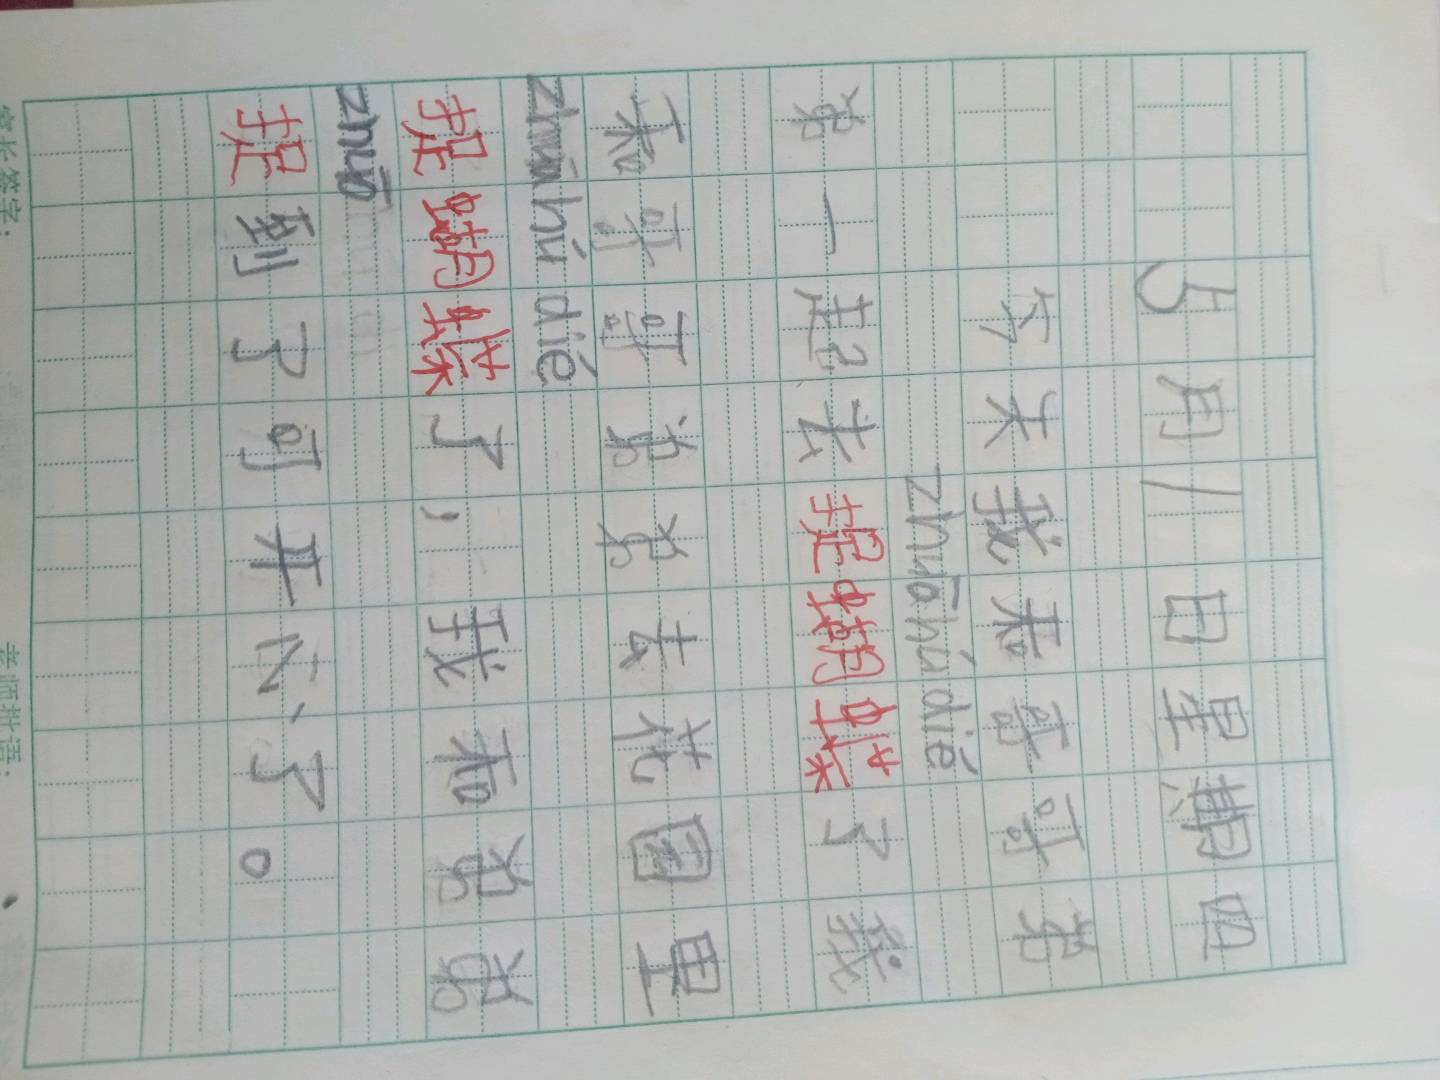 5月1日星期四
今天我和哥哥弟
zhuō hú dié
弟一起去捉蝴蝶了我
和哥哥弟弟去花园里
zhuō hú dié
捉蝴蝶了，我和弟弟
zhuō
捉到了可开心了。
家长签字: 老师批语: